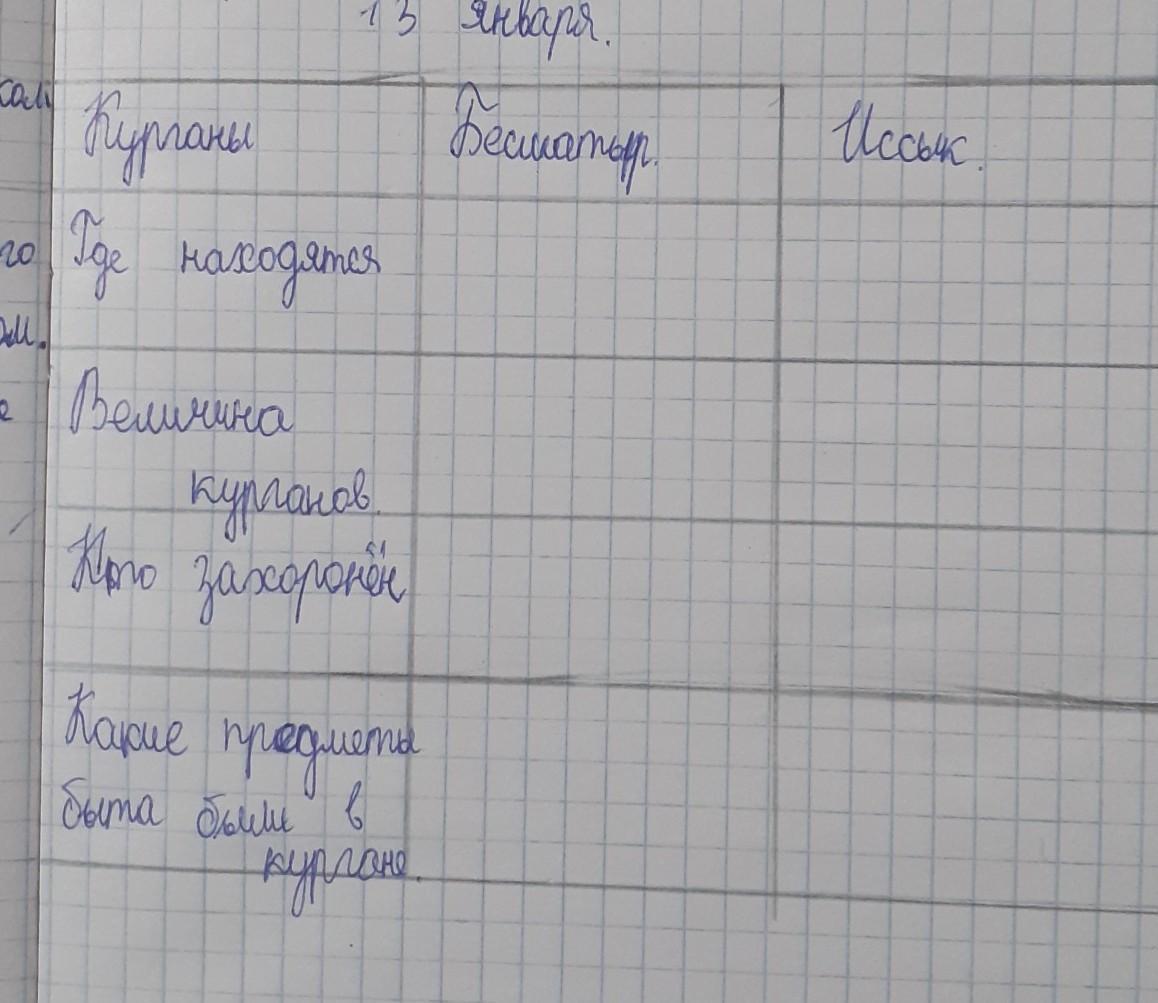 13 января.
Курганы Бесшатыр. Иссык.
го Где находятся
ом.
Величина
курганов.
Кто захоронён
Какие предметы
быта были в
кургане.